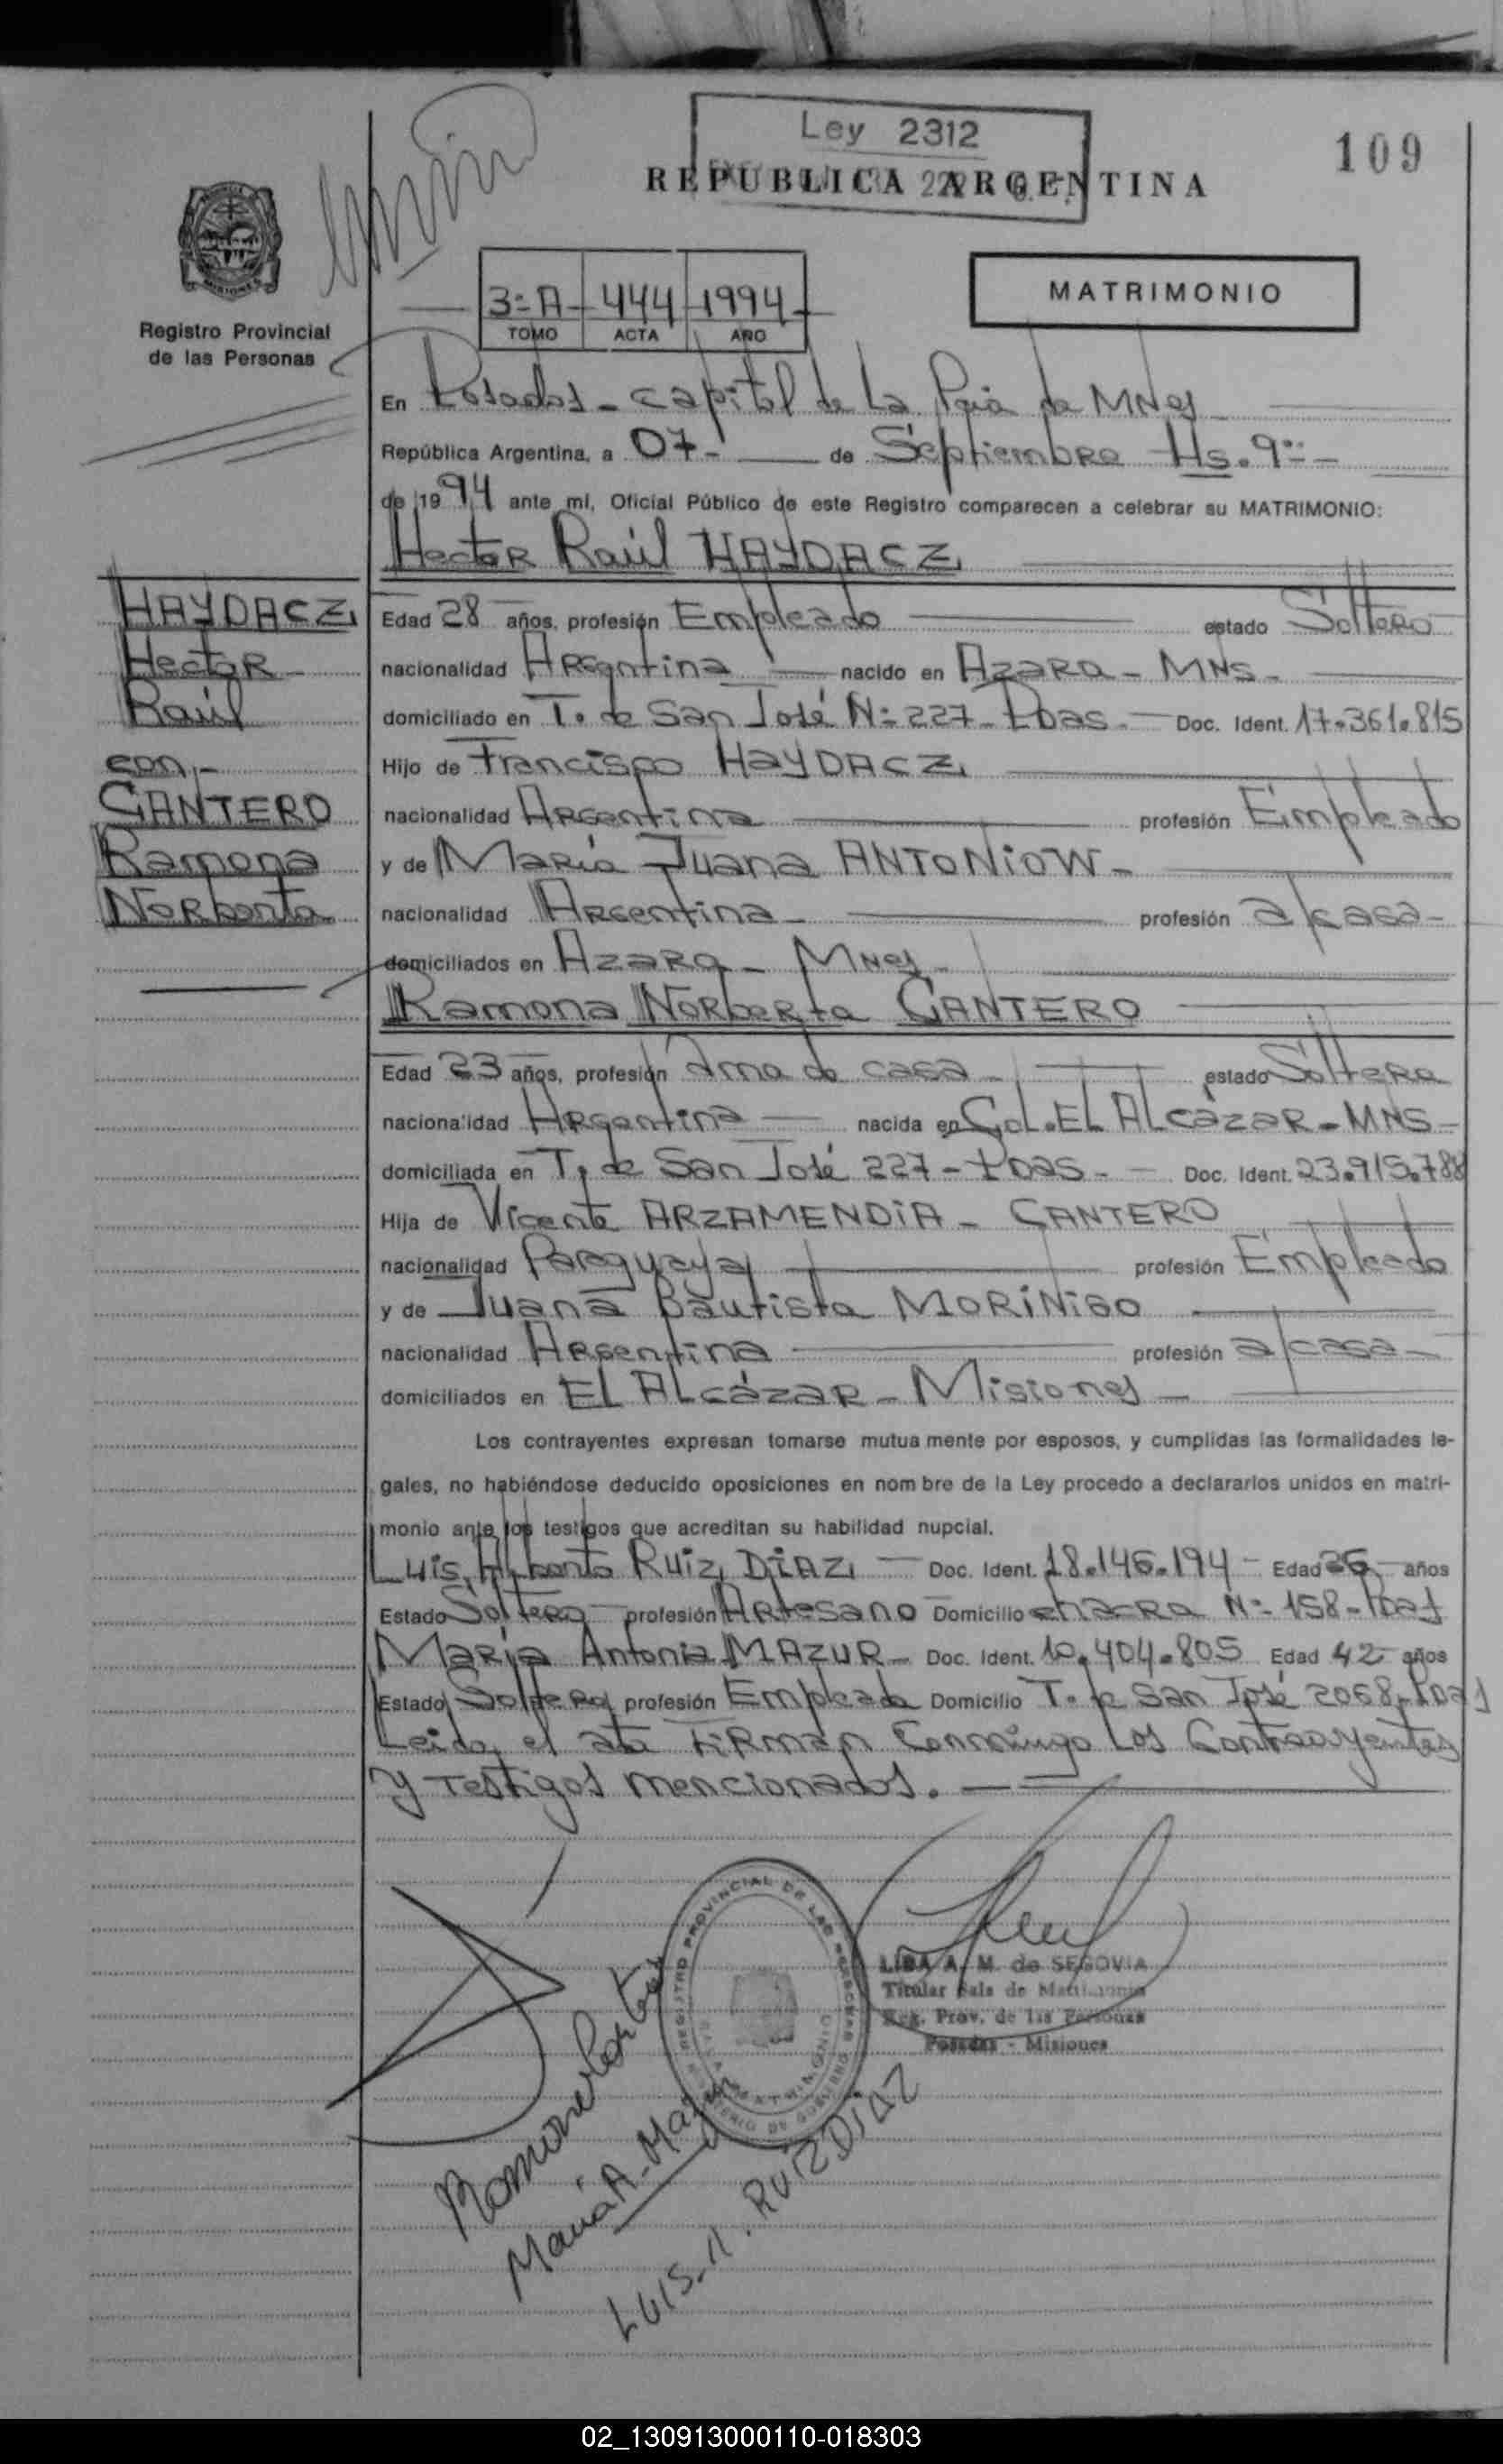 Ley 2312
109
REPUBLICA ARGENTINA
MISIONES
Registro Provincial
de las Personas
3=A- 444 1994-
TOMO ACTA AÑO
MATRIMONIO
En Posadas - capital de La Pcia de MNes
República Argentina, a 07- de Septiembre Hs. 9=-
de 1994 ante mí, Oficial Público de este Registro comparecen a celebrar su MATRIMONIO:
Hector Raúl HAYDACZ
HAYDACZ
Hector
Raúl
con-
GANTERO
Ramona
Norberta
Edad 28 años, profesión Empleado estado Soltero
nacionalidad Argentina nacido en Azara - MNS-
domiciliado en T. de San José N= 227- Pdas. Doc. Ident. 17.361.815
Hijo de Francisco HAYDACZ
nacionalidad Argentina profesión Empleado
y de María Juana ANTONiOW-
nacionalidad Argentina- profesión a/casa-
domiciliados en Azara - MNes-
Ramona Norberta GANTERO
Edad 23 años, profesión Ama de casa- estado Soltera
nacionalidad Argentina nacida en Col. EL ALcázar - MNS-
domiciliada en T. de San José 227 - Pdas- Doc. Ident. 23.915.788
Hija de Vicente ARZAMENDiA - GANTERO
nacionalidad Paraguaya profesión Empleado
y de Juana Bautista MORiNiGO
nacionalidad Argentina profesión a/casa-
domiciliados en EL ALcázar - Misiones
Los contrayentes expresan tomarse mutua mente por esposos, y cumplidas las formalidades le-
gales, no habiéndose deducido oposiciones en nom bre de la Ley procedo a declararlos unidos en matri-
monio ante los testigos que acreditan su habilidad nupcial.
Luis Alberto Ruiz DiAZ Doc. Ident. 18.146.194- Edad 26 años
Estado Soltero profesión Artesano Domicilio chacra N= 158-Pdas
María Antonia MAZUR- Doc. Ident. 10.404.805 Edad 42 años
Estado Soltera profesión Empleada Domicilio T. de San José 2068-Pdas
Leida el ata firman Conmingo Los Contrayentes
y Testigos mencionados.
REGISTRO PROVINCIAL DE LAS PERSONAS
MINISTERIO DE GOBIERNO
LIDA A. M. de SEGOVIA
Titular Sala de Matrimonio
Reg. Prov. de las Personas
Posadas - Misiones
Maria A. Mazur
LUIS. A. RUIZ DIAZ
02_130913000110-018303